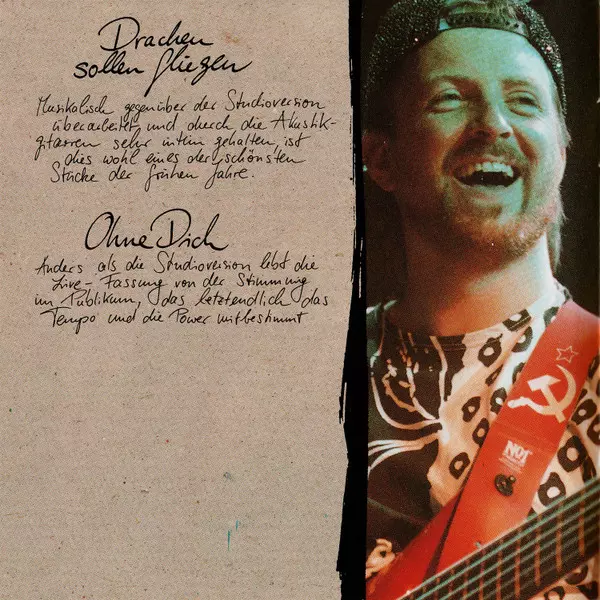 Drachen
sollen fliegen
Musikalisch gegenüber der Studioversion
überarbeitet, und durch die Akustik-
gitarren sehr intim gehalten, ist
dies wohl eines der schönsten
Stücke der frühen Jahre.
Ohne Dich
Anders als die Studioversion lebt die
Live-Fassung von der Stimmung
im Publikum, das letztendlich das
Tempo und die Power mitbestimmt
NO1